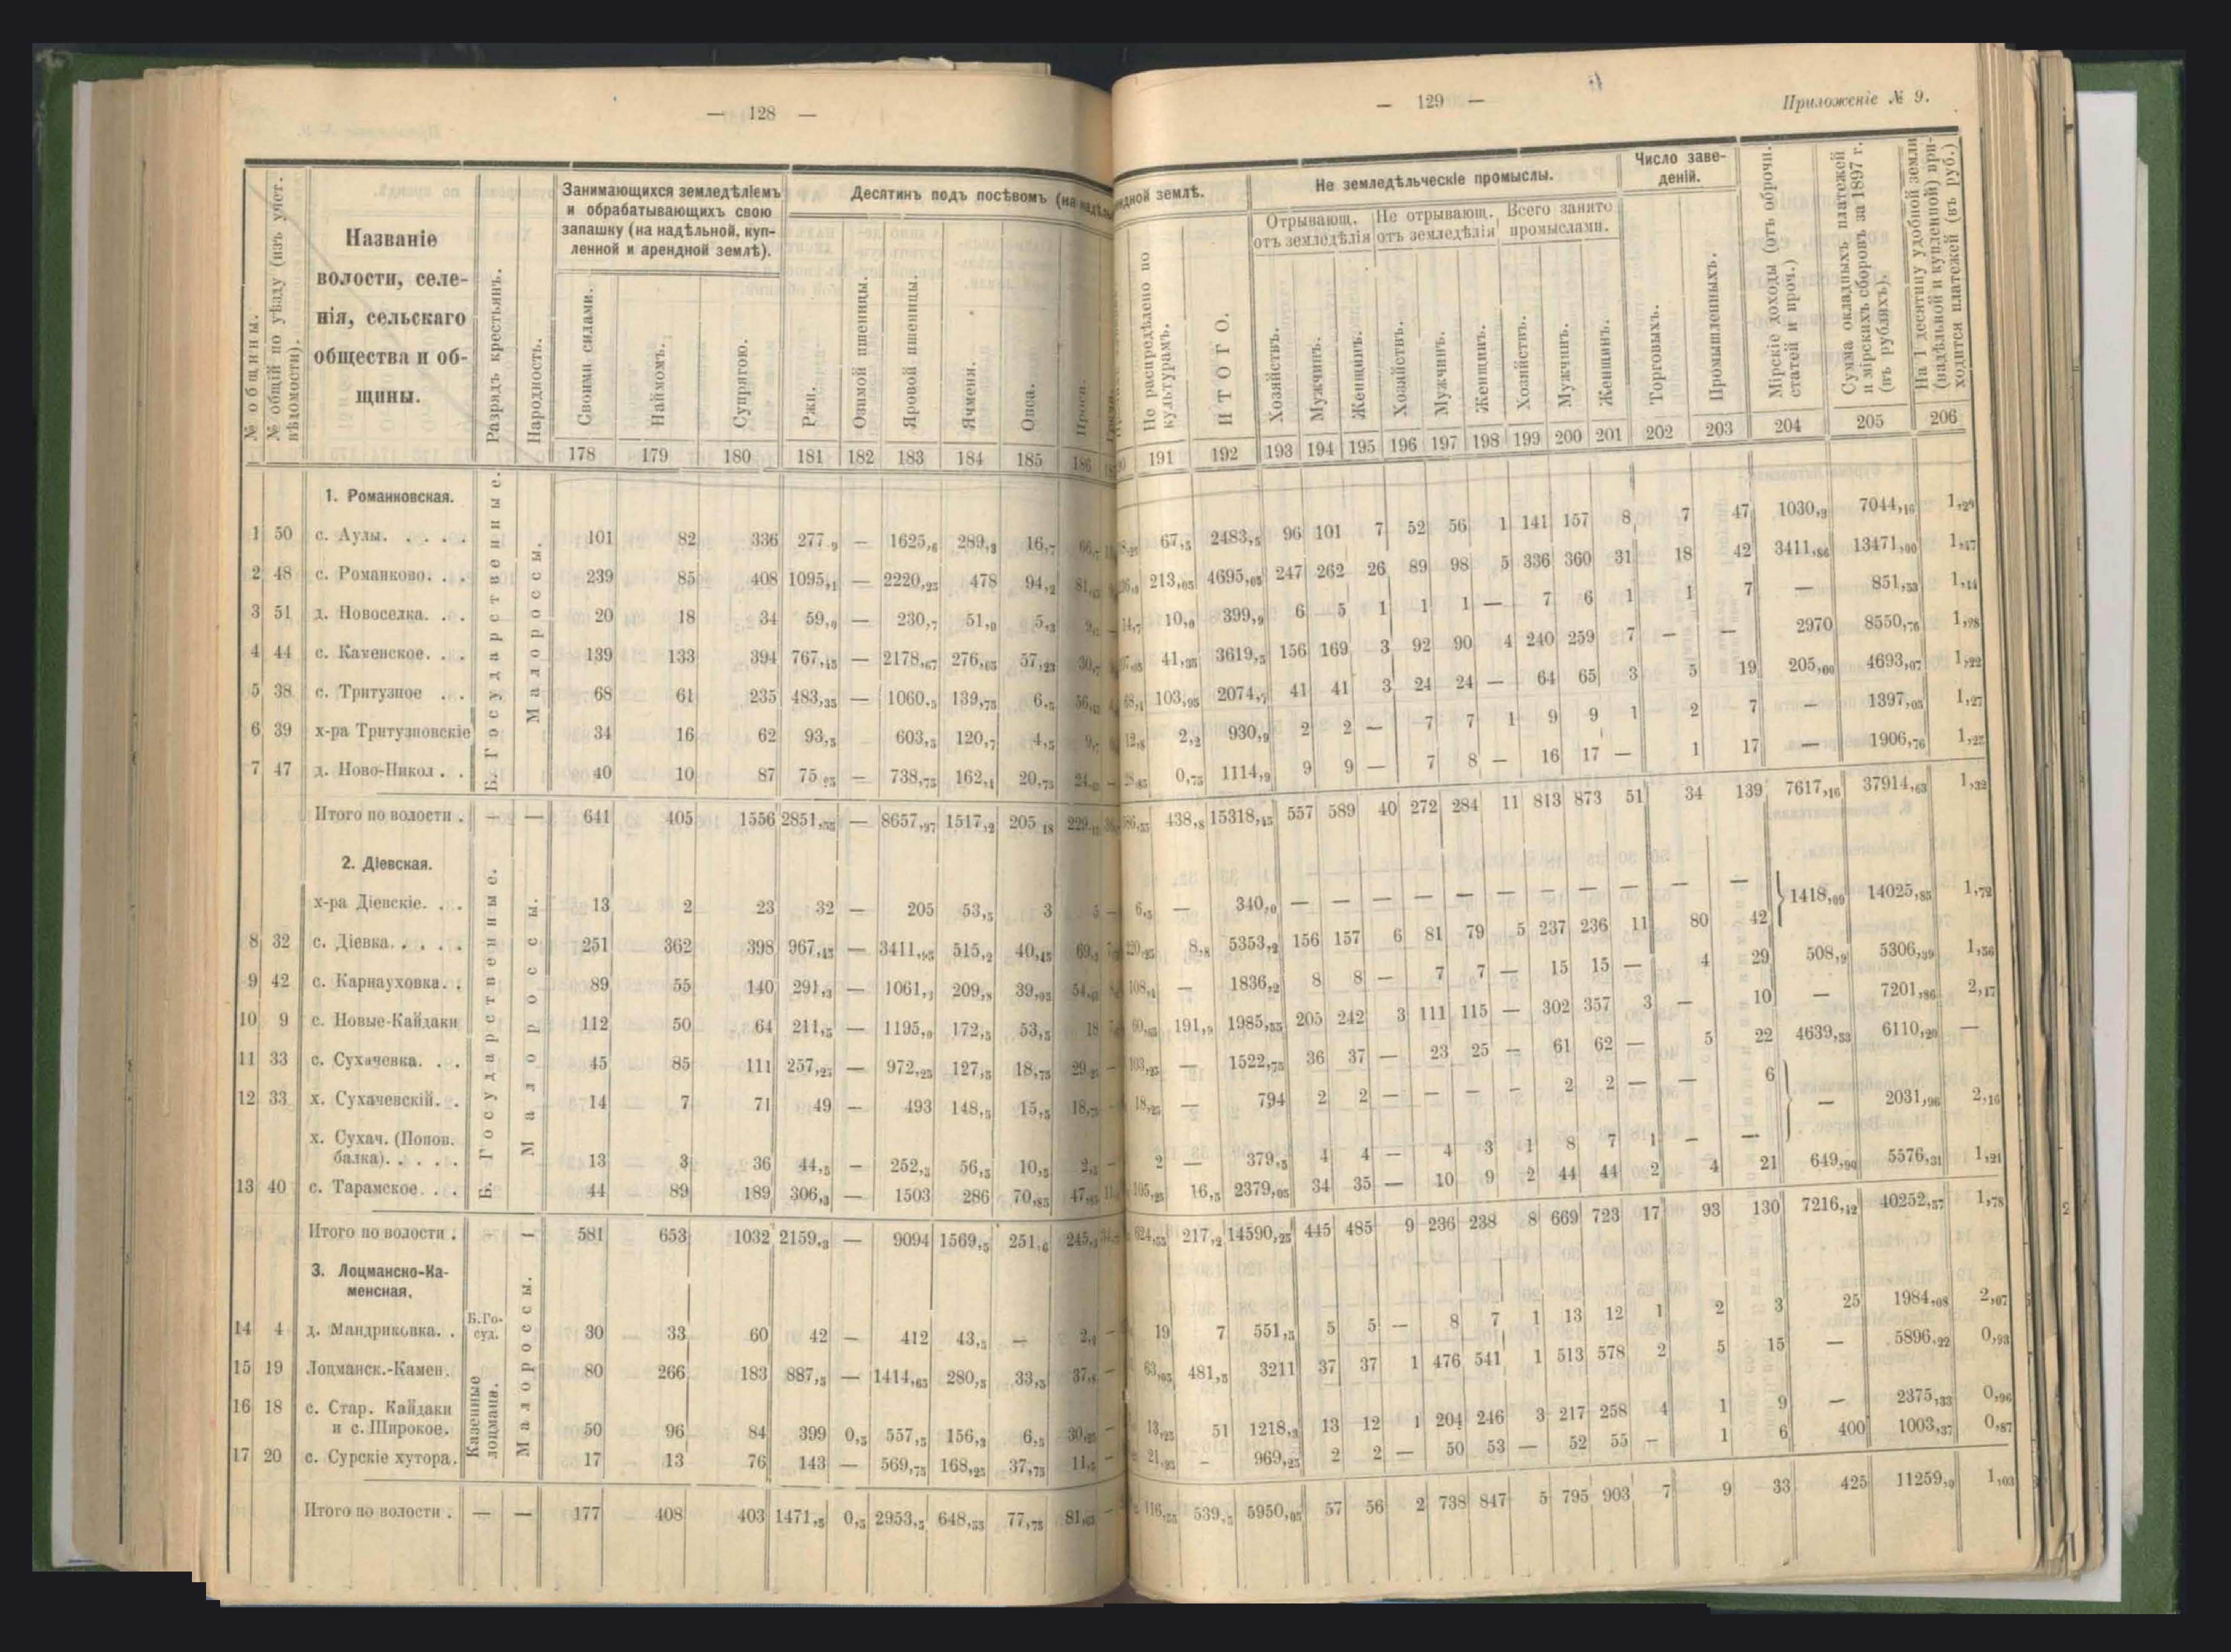 — 128 —
№ общины.
№ общій по уѣзду (изъ учет. вѣдомости).
Названіе
волости, селе-
нія, сельскаго
общества и об-
щины.
Разрядъ крестьянъ.
Народность.
Занимающихся земледѣліемъ
и обрабатывающихъ свою
запашку (на надѣльной, куп-
ленной и арендной землѣ).
Своими силами.
Наймомъ.
Супрягою.
Десятинъ подъ посѣвомъ (на надѣль
Ржи.
Озимой пшеницы.
Яровой пшеницы.
Ячменя.
Овса.
Проса.
178 179 180 181 182 183 184 185 186
1. Романковская.
Б. Государственные.
Малороссы.
1 50 с. Аулы. . . . . 101 82 336 277,9 — 1625,6 289,3 16,7
2 48 с. Романково. . . 239 85 408 1095,1 — 2220,25 478 94,2
3 51 д. Новоселка. . . 20 18 34 59,9 — 230,7 51,9 5,3
4 44 с. Каменское. . . 139 133 394 767,45 — 2178,67 276,65 57,23
5 38 с. Тритузное . . 68 61 235 483,35 — 1060,5 139,75 6,5
6 39 х-ра Тритузновскіе 34 16 62 93,5 603,5 120,7 4,5
7 47 д. Ново-Никол . . 40 10 87 75,25 — 738,75 162,4 20,75
Итого по волости . — — 641 405 1556 2851,55 — 8657,97 1517,2 205,18
2. Діевская.
Б. Государственные.
Малороссы.
х-ра Діевскіе. . . 13 2 23 32 — 205 53,5 3 5 —
8 32 с. Діевка. . . . . 251 362 398 967,45 — 3411,95 515,2 40,45
9 42 с. Карнауховка. . 89 55 140 291,3 — 1061,3 209,8 39,05
10 9 с. Новые-Кайдаки 112 50 64 211,5 — 1195,9 172,5 53,5 18
11 33 с. Сухачевка. . . 45 85 111 257,25 — 972,25 127,5 18,75
12 33 х. Сухачевскій. . 14 7 71 49 — 493 148,5 15,5
х. Сухач. (Попов.
балка). . . . . 13 3 36 44,5 — 252,5 56,5 10,5
13 40 с. Тарамское. . . 44 89 189 306,3 — 1503 286 70,85
Итого по волости . — — 581 653 1032 2159,3 — 9094 1569,5 251,6
3. Лоцманско-Ка-
менская.
Б. Го-
суд.
Казенные лоцмана.
Малороссы.
14 4 д. Мандриковка. . 30 33 60 42 — 412 43,5 —
15 19 Лоцманск.-Камен. 80 266 183 887,5 — 1414,65 280,5 33,5
16 18 с. Стар. Кайдаки
и с. Широкое. 50 96 84 399 0,5 557,5 156,3 6,5
17 20 с. Сурскіе хутора. 17 13 76 143 — 569,75 168,25 37,75
Итого по волости . — — 177 408 403 1471,5 0,5 2953,5 648,55 77,75
— 129 —
Приложеніе № 9.
ндной землѣ.
Не распредѣлено по культурамъ.
ИТОГО.
Не земледѣльческіе промыслы.
Отрывающ.
отъ земледѣлія
Не отрывающ.
отъ земледѣлія
Всего занято
промыслами.
Хозяйствъ.
Мужчинъ.
Женщинъ.
Хозяйствъ.
Мужчинъ.
Женщинъ.
Хозяйствъ.
Мужчинъ.
Женщинъ.
Число заве-
деній.
Торговыхъ.
Промышленныхъ.
Мірскіе доходы (отъ оброчн. статей и проч.)
Сумма окладныхъ платежей и мірскихъ сборовъ за 1897 г. (въ рубляхъ).
На 1 десятину удобной земли (надѣльной и купленной) при- ходится платежей (въ руб.)
191 192 193 194 195 196 197 198 199 200 201 202 203 204 205 206
67,5 2483,5 96 101 7 52 56 1 141 157 8 7 47 1030,9 7044,16 1,29
213,05 4695,05 247 262 26 89 98 5 336 360 31 18 42 3411,86 13471,00 1,47
14,7 10,0 399,9 6 5 1 1 1 — 7 6 1 1 7 — 851,53 1,44
41,35 3619,5 156 169 3 92 90 4 240 259 7 — — 2970 8550,76 1,28
103,95 2074,7 41 41 3 24 24 — 64 65 3 5 19 205,00 4693,07 1,22
12,8 2,2 930,9 2 2 — 7 7 1 9 9 1 2 7 — 1397,05 1,27
0,75 1114,9 9 9 — 7 8 — 16 17 — 1 17 — 1906,76 1,22
438,8 15318,45 557 589 40 272 284 11 813 873 51 34 139 7617,16 37914,63 1,32
6,5 — 340,0 — — — — — — — — — — — 1418,09 14025,85 1,72
8,8 5353,2 156 157 6 81 79 5 237 236 11 80 42
— 1836,2 8 8 — 7 7 — 15 15 — 4 29 508,9 5306,39 1,56
191,9 1985,55 205 242 3 111 115 — 302 357 3 — 10 — 7201,86 2,17
103,25 — 1522,75 36 37 — 23 25 — 61 62 — 5 22 4639,53 6110,20 —
18,25 — 794 2 2 — — — — 2 2 — — 6 — 2031,96 2,16
2 — 379,5 4 4 — 4 3 1 8 7 1 — —
105,25 16,5 2379,05 34 35 — 10 9 2 44 44 2 4 21 649,90 5576,31 1,21
624,55 217,2 14590,25 445 485 9 236 238 8 669 723 17 93 130 7216,42 40252,57 1,78
19 7 551,5 5 5 — 8 7 1 13 12 1 2 3 25 1984,08 2,07
63,05 481,5 3211 37 37 1 476 541 1 513 578 2 5 15 — 5896,22 0,93
13,25 51 1218,3 13 12 1 204 246 3 217 258 4 1 9 — 2375,33 0,96
21,25 — 969,25 2 2 — 50 53 — 52 55 — 1 6 400 1003,37 0,87
116,55 539,5 5950,05 57 56 2 738 847 5 795 903 7 9 33 425 11259,0 1,03